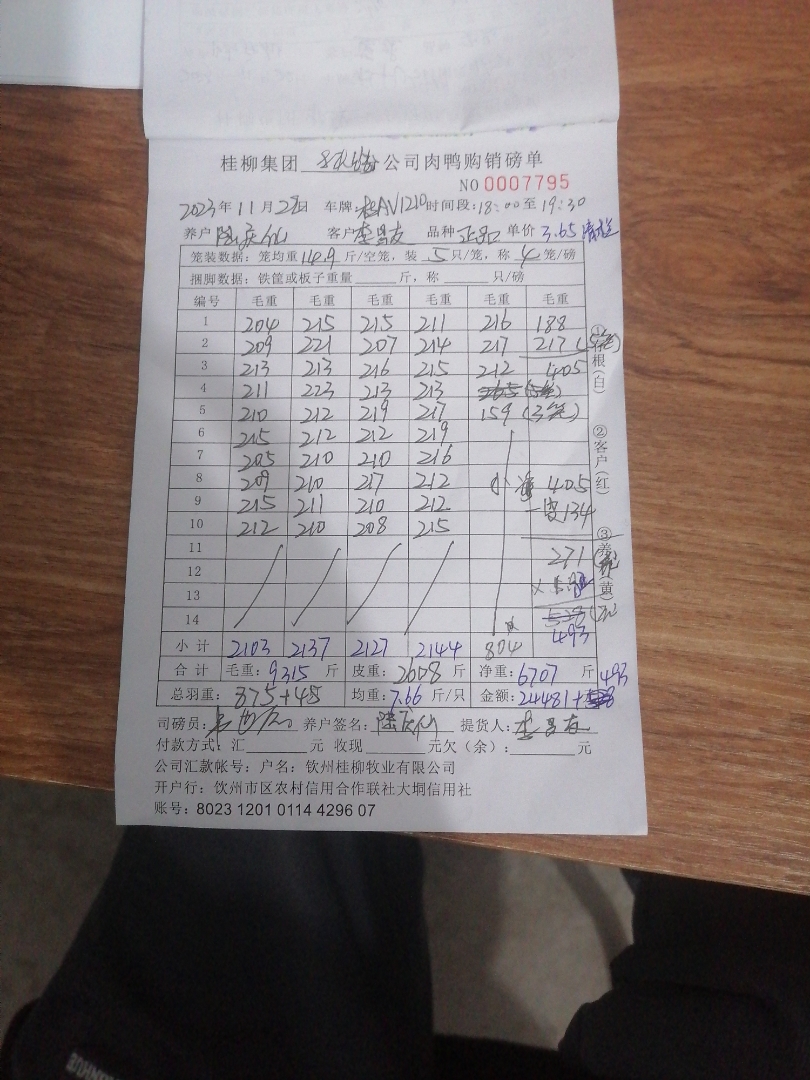 桂柳集团 公司肉鸭购销磅单
NO 0007795
2023年11月28日 车牌:桂AV1210 时间段:18:00至19:30
养户 陆庆仙 客户 李昌友 品种 正品 单价 3.65
笼装数据:笼均重 14.9 斤/空笼,装 5 只/笼,称 4 笼/磅
捆脚数据:铁筐或板子重量 斤,称 只/磅
编号 毛重 毛重 毛重 毛重 毛重 毛重
1 204 215 215 211 216 188
2 209 221 207 214 217 217 (5笼)
3 213 213 216 215 212 405
4 211 223 213 213
5 210 212 219 217 159 (3笼)
6 215 212 212 219
7 205 210 210 216
8 209 210 217 212 405
9 215 211 210 212 -皮134
10 212 210 208 215
11 271
12
13
14
小计 2103 2137 2127 2144 804 493
合计 毛重:9315 斤 皮重:2608 斤 净重:6707 斤 493
总羽重: 875+45 均重:7.66 斤/只 金额:24481+
司磅员: 养户签名:陆庆仙 提货人:李昌友
付款方式:汇 元 收现 元欠(余): 元
公司汇款帐号:户名:钦州桂柳牧业有限公司
开户行:钦州市区农村信用合作联社大垌信用社
账号:8023 1201 0114 4296 07
①存根(白)
②客户(红)
③养户(黄)